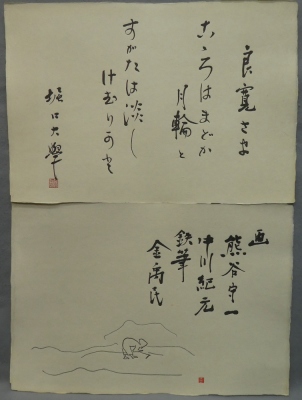 良寛さま
こゝろはまどか
月輪と
すがたは淡し
けむりのごと
堀口大學
画
熊谷守一
中川紀元
鉄筆
金禹民